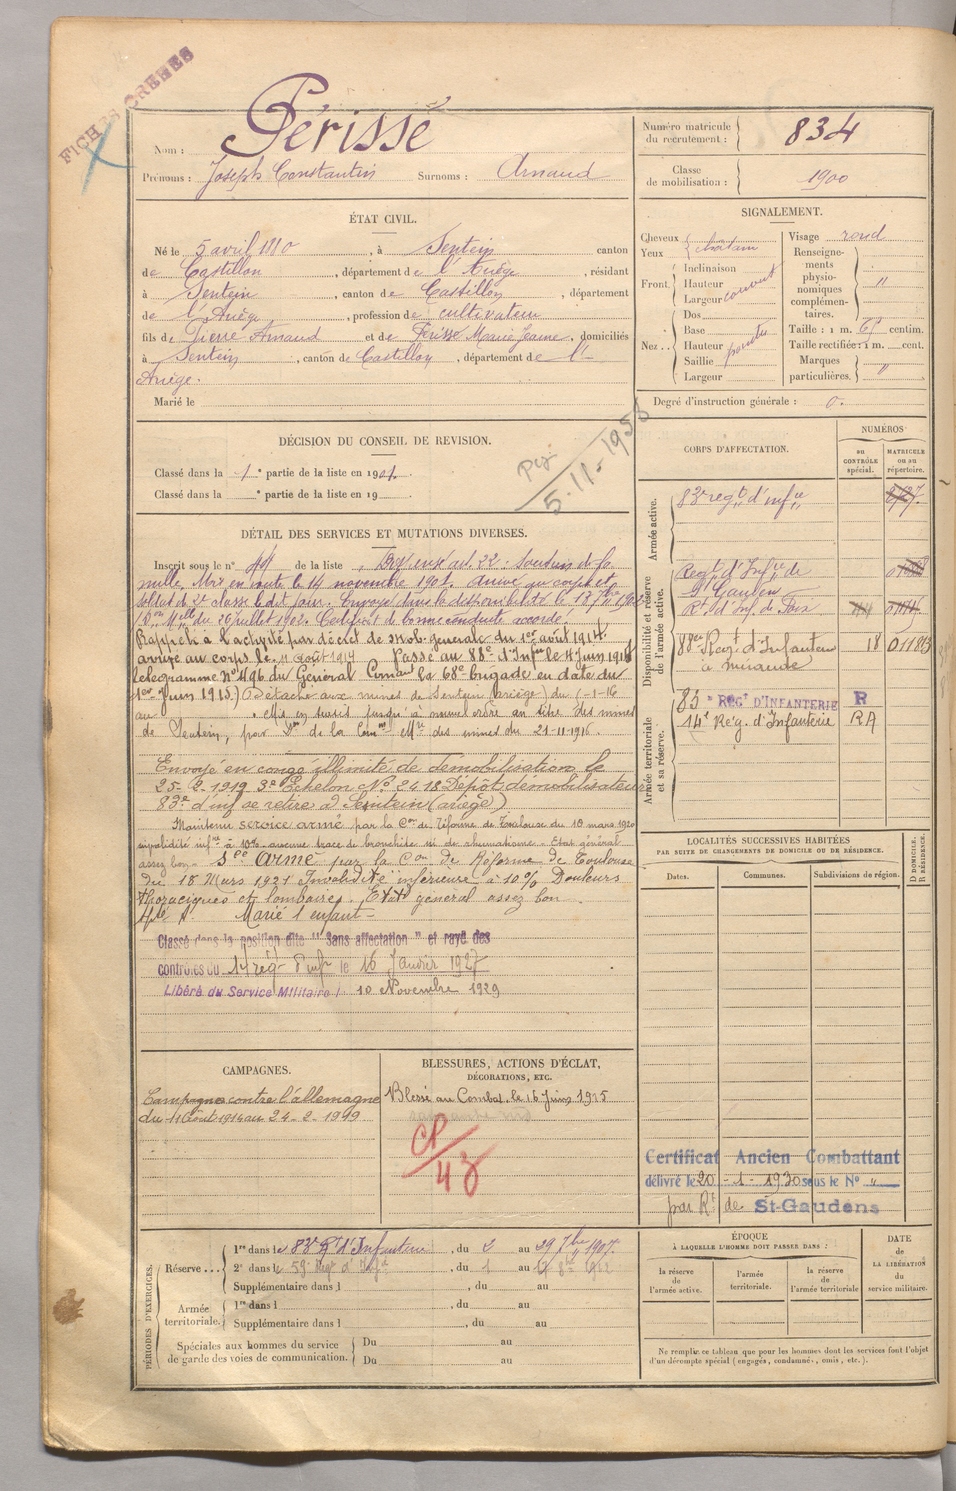 FICHES CRÉÉES
Nom : Périssé
Prénoms : Joseph Constantin Surnoms : Arnaud
Numéro matricule du recrutement : 834
Classe de mobilisation : 1900
ÉTAT CIVIL.
Né le 5 avril 1880, à Sentein canton
de Castillon, département de l'Ariège, résidant
à Sentein, canton de Castillon, département
de l'Ariège, profession de cultivateur
fils de Pierre Arnaud et de Périssé Marie Jeanne, domiciliés
à Sentein, canton de Castillon, département de l'
Ariège.
Marié le
SIGNALEMENT.
Cheveux châtain
Yeux
Front. Inclinaison
Hauteur
Largeur couvert
Nez.. Dos
Base
Hauteur
Saillie
Largeur
Visage rond
Renseignements physionomiques complémentaires. "
Taille : 1 m. centim.
Taille rectifiée : 1 m. cent.
Marques particulières. "
Degré d'instruction générale : 0.
DÉCISION DU CONSEIL DE REVISION.
Classé dans la 1e partie de la liste en 1901.
Classé dans la e partie de la liste en 19
5-11-1958
DÉTAIL DES SERVICES ET MUTATIONS DIVERSES.
Inscrit sous le n° 44 de la liste , art. 22 : Soutien de fa
mille. Mis en route le 14 novembre 1901. Arrivé au corps et
soldat de 2e classe le dit jour. Envoyé dans la disponibilité le 18 7bre 1902
du 26 juillet 1902. Certificat de bonne conduite accordé.
Rappelé à l'activité par décret de mob. générale du 1er août 1914.
arrivé au corps le 11 août 1914 Passé au 88e d'Infie le 4 Juin 1915
télégramme N° 496 du Général Comm la 68e brigade en date du
1er Juin 1915.) Détaché aux mines de Sentein (ariège) du 1-1-16
au . Mis en sursis jusqu'à nouvel ordre au titre des mines
de Sentein, par Don de la Com des mines du 21-11-1916.
Envoyé en congé illimité de démobilisation le
25-2-1919 3e Echelon N° 2418 Dépôt démobilisateur
83e d'inf se retire à Sentein (ariège)
Maintenu service armé par la Con de Réforme de Toulouse du 18 mars 1920
invalidité infre à 10% aucune trace de bronchite ni de rhumatisme - Etat général
assez bon - Sce armé par la Con de Réforme de Toulouse
du 18 Mars 1921 Invalidité inférieure à 10% Douleurs
thoraciques et lombaires. Etat général assez bon
Marié 1 enfant -
Classé dans la position dite "Sans affectation" et rayé des
contrôles du 14 reg d'inf le 16 Janvier 1927
Libéré du Service Militaire l 10 Novembre 1929
CORPS D'AFFECTATION.
NUMÉROS
au CONTRÔLE spécial.
MATRICULE ou au répertoire.
Armée active.
83e regt d'infie
Disponibilité et réserve de l'armée active.
Regt d'Infie de
St Gaudens
Rt d'Inf de Foix
88e Regt d'Infanterie 18 01183
à Mirande
Armée territoriale et sa réserve.
83 e REGt D'INFANTERIE R
14e Rég. d'Infanterie RA
LOCALITÉS SUCCESSIVES HABITÉES
PAR SUITE DE CHANGEMENTS DE DOMICILE OU DE RÉSIDENCE.
Dates. Communes. Subdivisions de région. D DOMICILE. R RÉSIDENCE.
Certificat Ancien Combattant
délivré le 20-1-1930 sous le N° "
par Rt de St-Gaudens
CAMPAGNES.
Campagne contre l'allemagne
du 11 Août 1914 au 24-2-1919
BLESSURES, ACTIONS D'ÉCLAT,
DÉCORATIONS, ETC.
Blessé au Combat, le 16 Juin 1915
CP/43
PÉRIODES D'EXERCICES.
Réserve... 1re dans le 83e Rt d'Infanterie, du 2 au 29 7bre 1907.
2e dans le 59e Regt d'Infie, du 1 au 8bre 1912
Supplémentaire dans l , du au
Armée territoriale. 1re dans l , du au
Supplémentaire dans l , du au
Spéciales aux hommes du service Du au
de garde des voies de communication. Du au
ÉPOQUE
À LAQUELLE L'HOMME DOIT PASSER DANS :
la réserve de l'armée active.
l'armée territoriale.
la réserve de l'armée territoriale
DATE de LA LIBÉRATION du service militaire.
Ne remplir ce tableau que pour les hommes dont les services font l'objet
d'un décompte spécial (engagés, condamnés, omis, etc.).